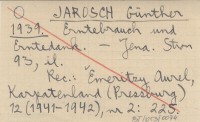 JAROSCH Günther
1939. Erntebrauch und
Erntedank. — Jena. Strn
93, il.
Rec.: Emeritzy Aurel,
Karpatenland (Pressburg)
12 (1941-1942), nr 2: 225.